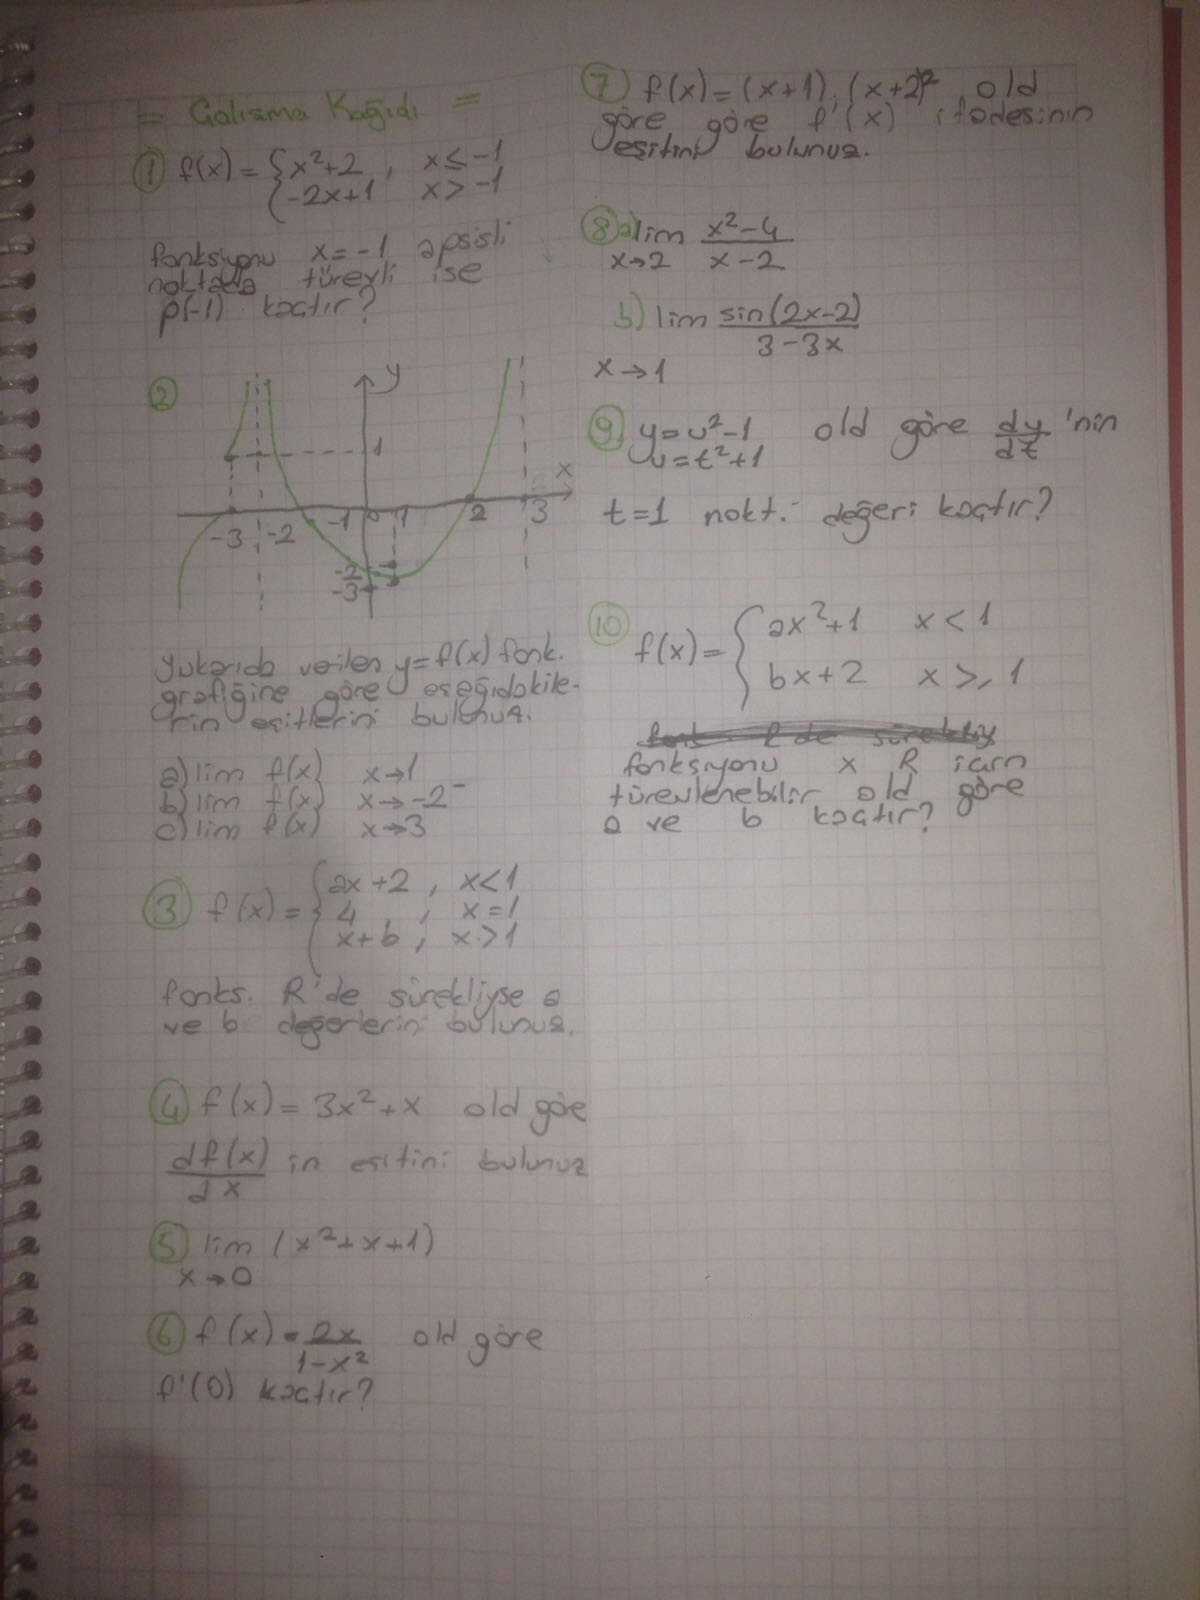 = Çalışma Kağıdı =
① f(x) = { x²+2 , x ≤ -1
-2x+1 x > -1
fonksiyonu x = -1 apsisli
noktada türevli ise
f'(-1) kaçtır?
②
y
1
x
-3 -2 -1 0 1 2 3
-2
-3
Yukarıda verilen y=f(x) fonk.
grafiğine göre aşağıdakile-
rin eşitlerini bulunuz.
a) lim f(x) x→1
b) lim f(x) x→-2⁻
c) lim f(x) x→3
③ f(x) = { ax+2 , x<1
4 , x=1
x+b , x>1
fonks. R'de sürekliyse a
ve b değerlerini bulunuz.
④ f(x) = 3x²+x old göre
df(x)/dx in eşitini bulunuz
⑤ lim (x²+x+1)
x→0
⑥ f(x) = 2x/1-x² old göre
f'(0) kaçtır?
⑦ f(x) = (x+1).(x+2)² old
göre göre f'(x) ifadesinin
eşitini bulunuz.
⑧ a) lim x²-4/x-2
x→2
b) lim sin(2x-2)/3-3x
x→1
⑨ y=u²-1 old göre dy/dt 'nin
u=t²+1
t=1 nokt. değeri kaçtır?
⑩ f(x) = { ax²+1 x < 1
bx+2 x ≥ 1
fonksiyonu x R için
türevlenebilir old göre
a ve b kaçtır?